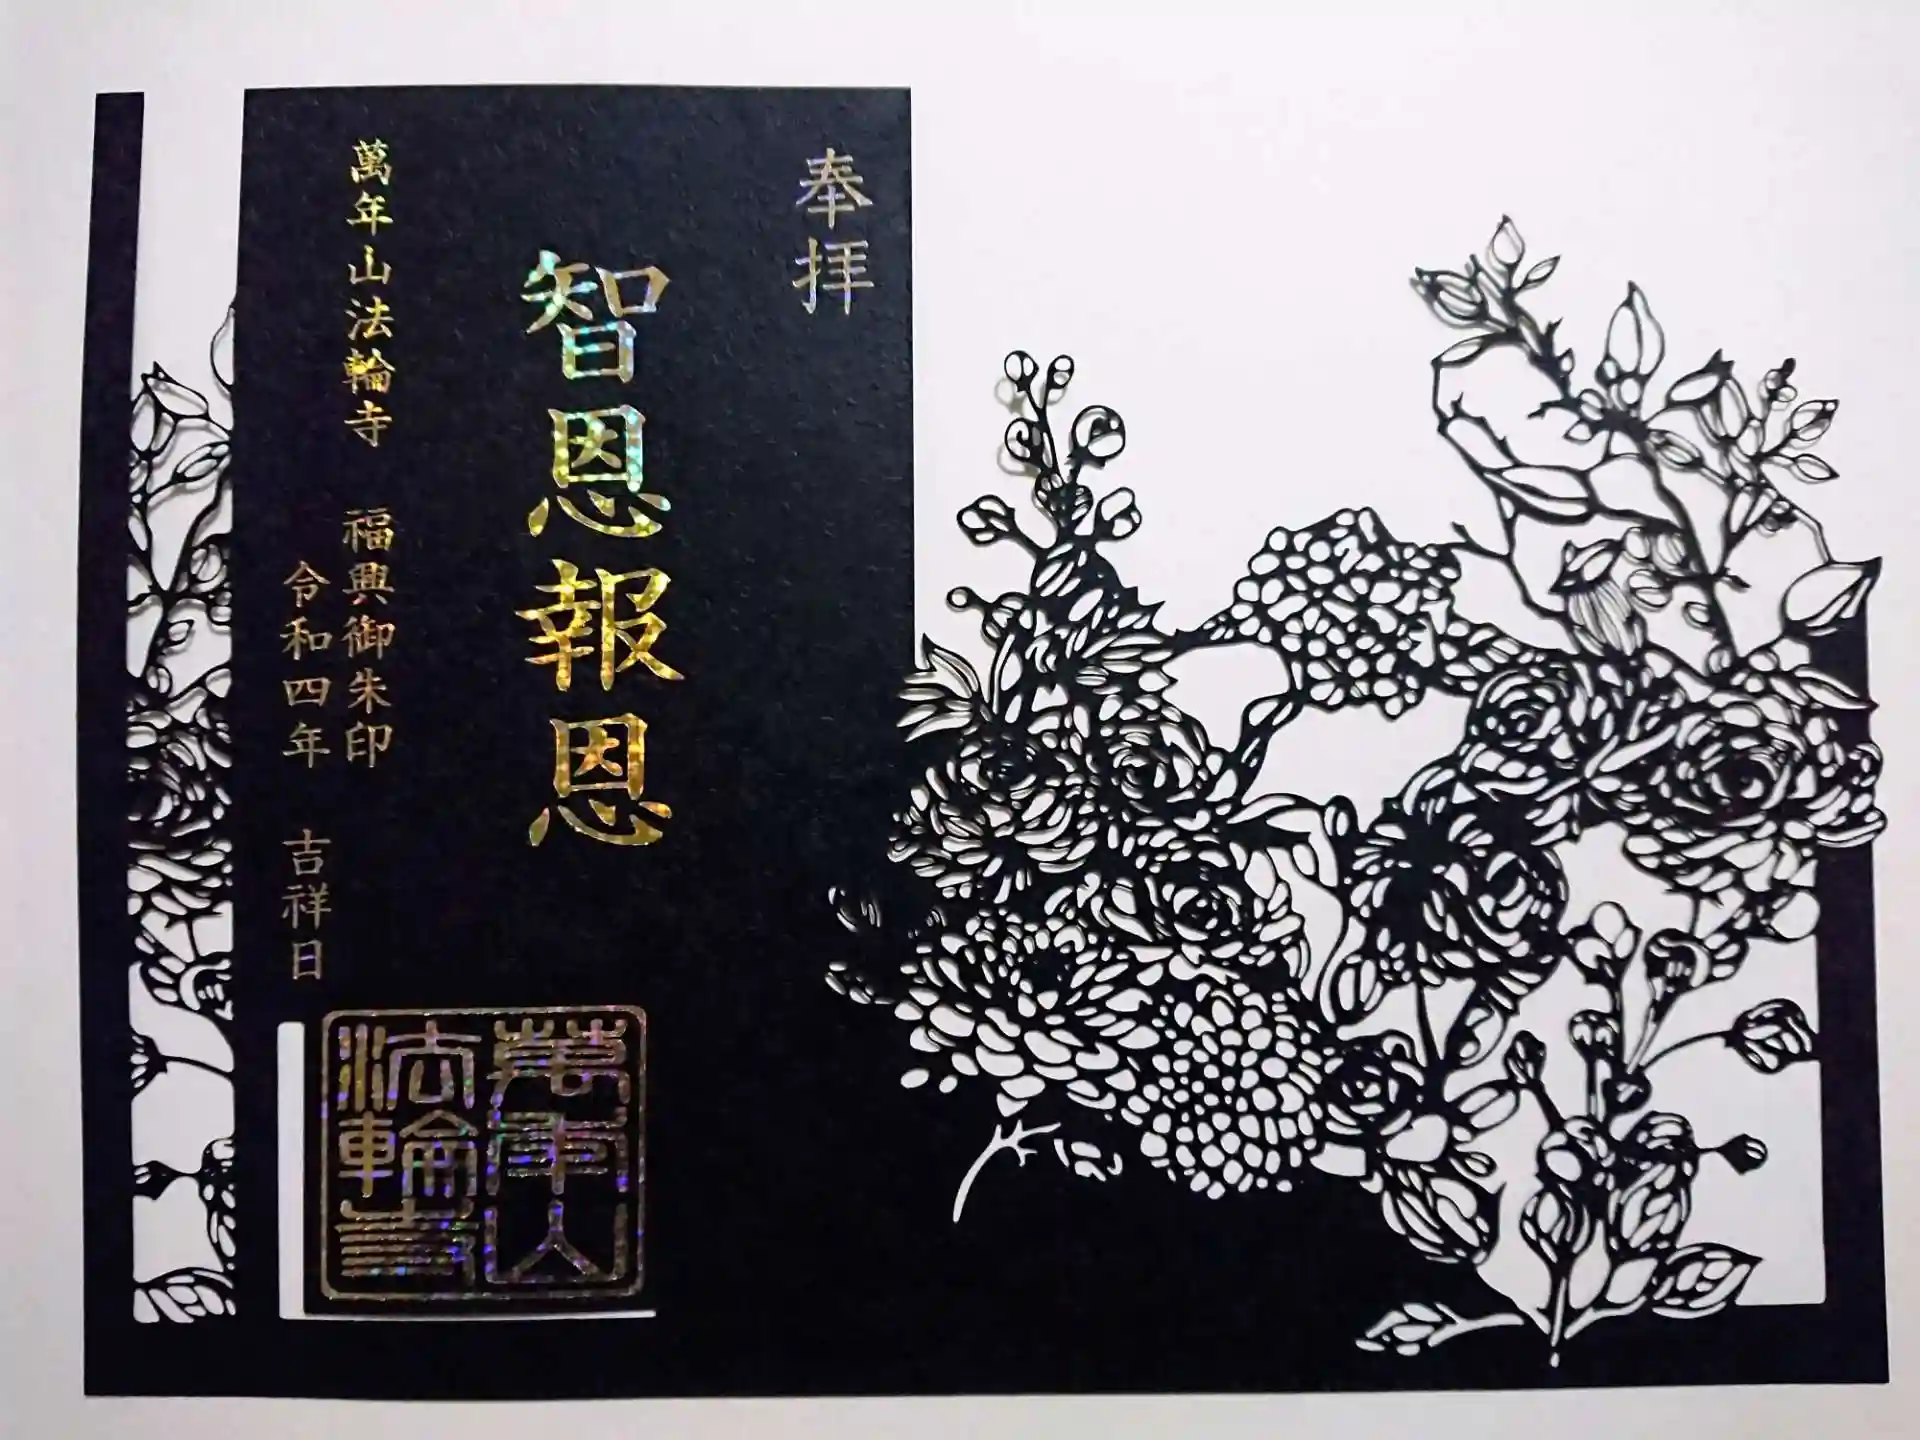 奉拝
智恩報恩
萬年山法輪寺 福興御朱印
令和四年 吉祥日
萬年山
法輪寺